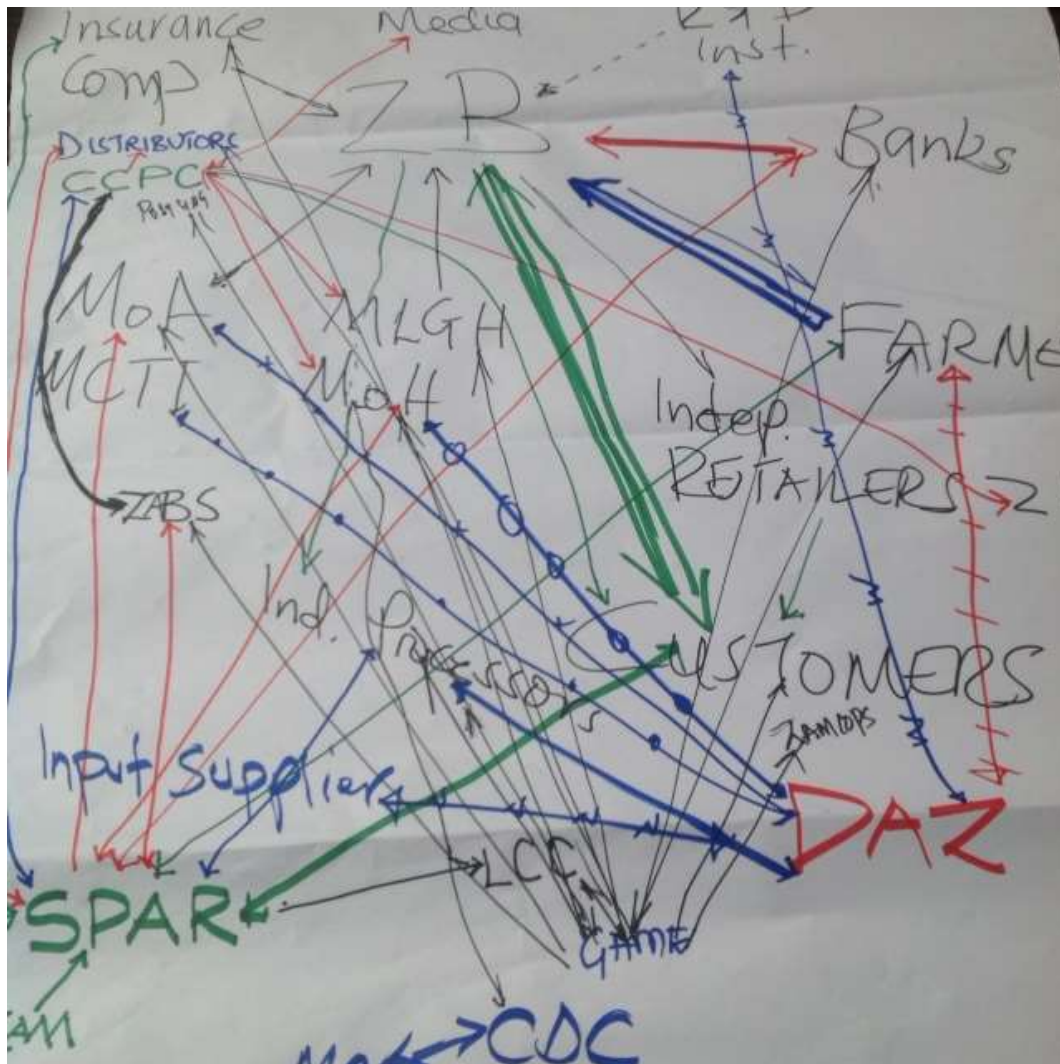 Insurance
Comp
Media
Inst.
ZB
Banks
DISTRIBUTORS
CCPC
MoA
MLGH
MCTI
MoH
FARME
Indep.
RETAILERS Z
ZABS
Ind. Processors
CUSTOMERS
Input Supplier
DAZ
LCC
SPAR
GAME
CDC